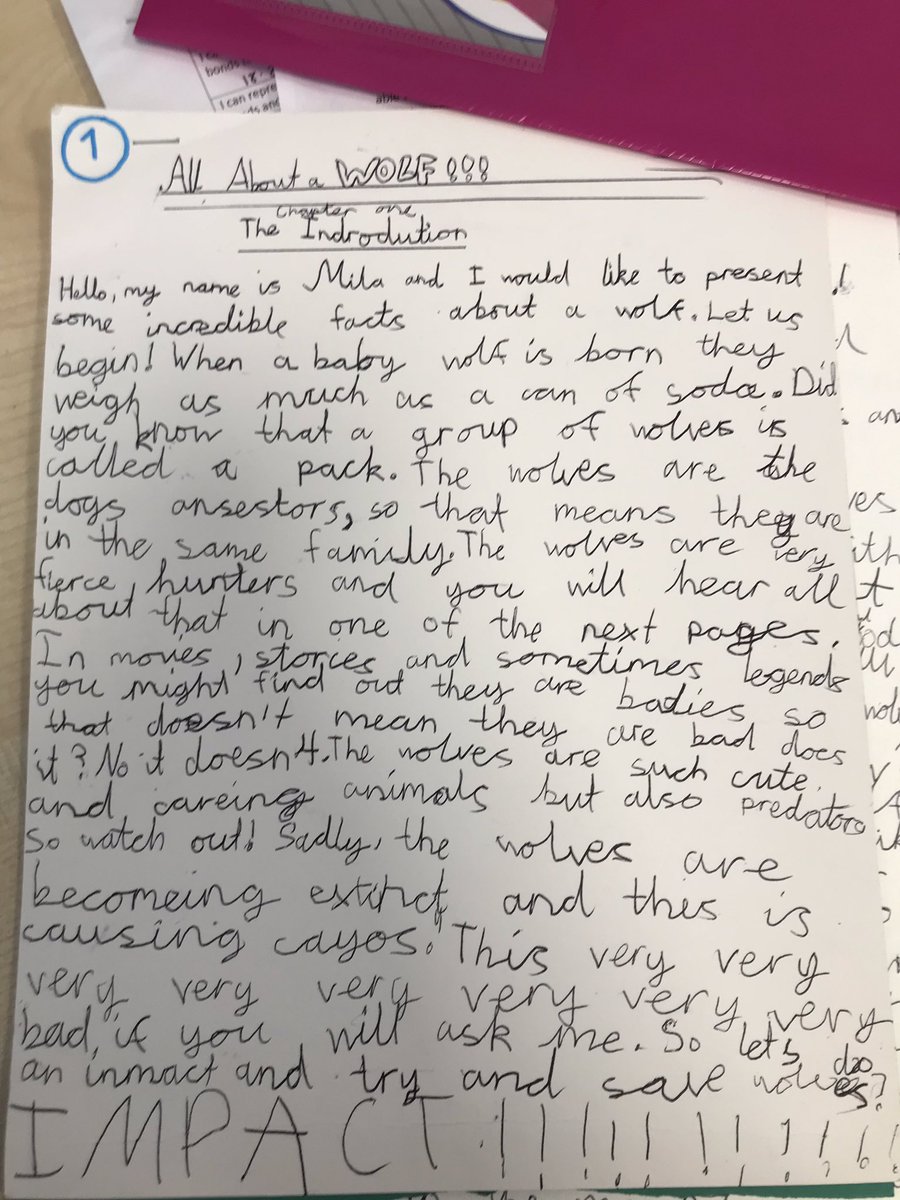 bonds
18.
I can repre
ds and
able
1
All About a WOLF!!!
Chapter one
The Indrodution
Hello, my name is Mila and I would like to present
some incredible facts about a wolf. Let us
begin! When a baby wolf is born they
weigh as much as a can of soda. Did
you know that a group of wolves is
called a pack. The wolves are the
dogs ansestors, so that means they are
in the same family. The wolves are very
fierce hunters and you will hear all
about that in one of the next pages.
In moves, storces and sometimes legends
you might find out they are badies so
that doesn't mean they are bad does
it? No it doesn4. The wolves are such cute
and careing animals but also predators
so watch out! Sadly, the wolves are
becomeing extinct and thes is
causing cayos. This very very
very very very very very very
bad, if you will ask me. So let's do
an inmact and try and save wolves?
IMPACT!!!!!!!!!!!!